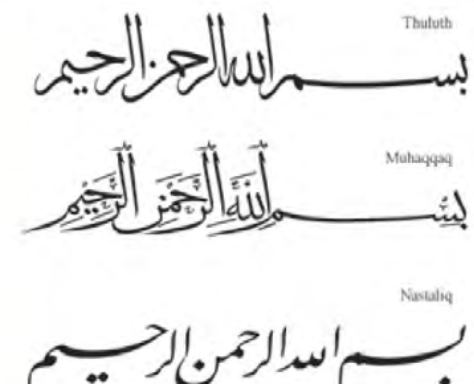 Thuluth
بسم الله الرحمن الرحيم
Muhaqqaq
بِسْمِ اللَّهِ الرَّحْمَٰنِ الرَّحِيمِ
Nastaliq
بسم الله الرحمن الرحيم